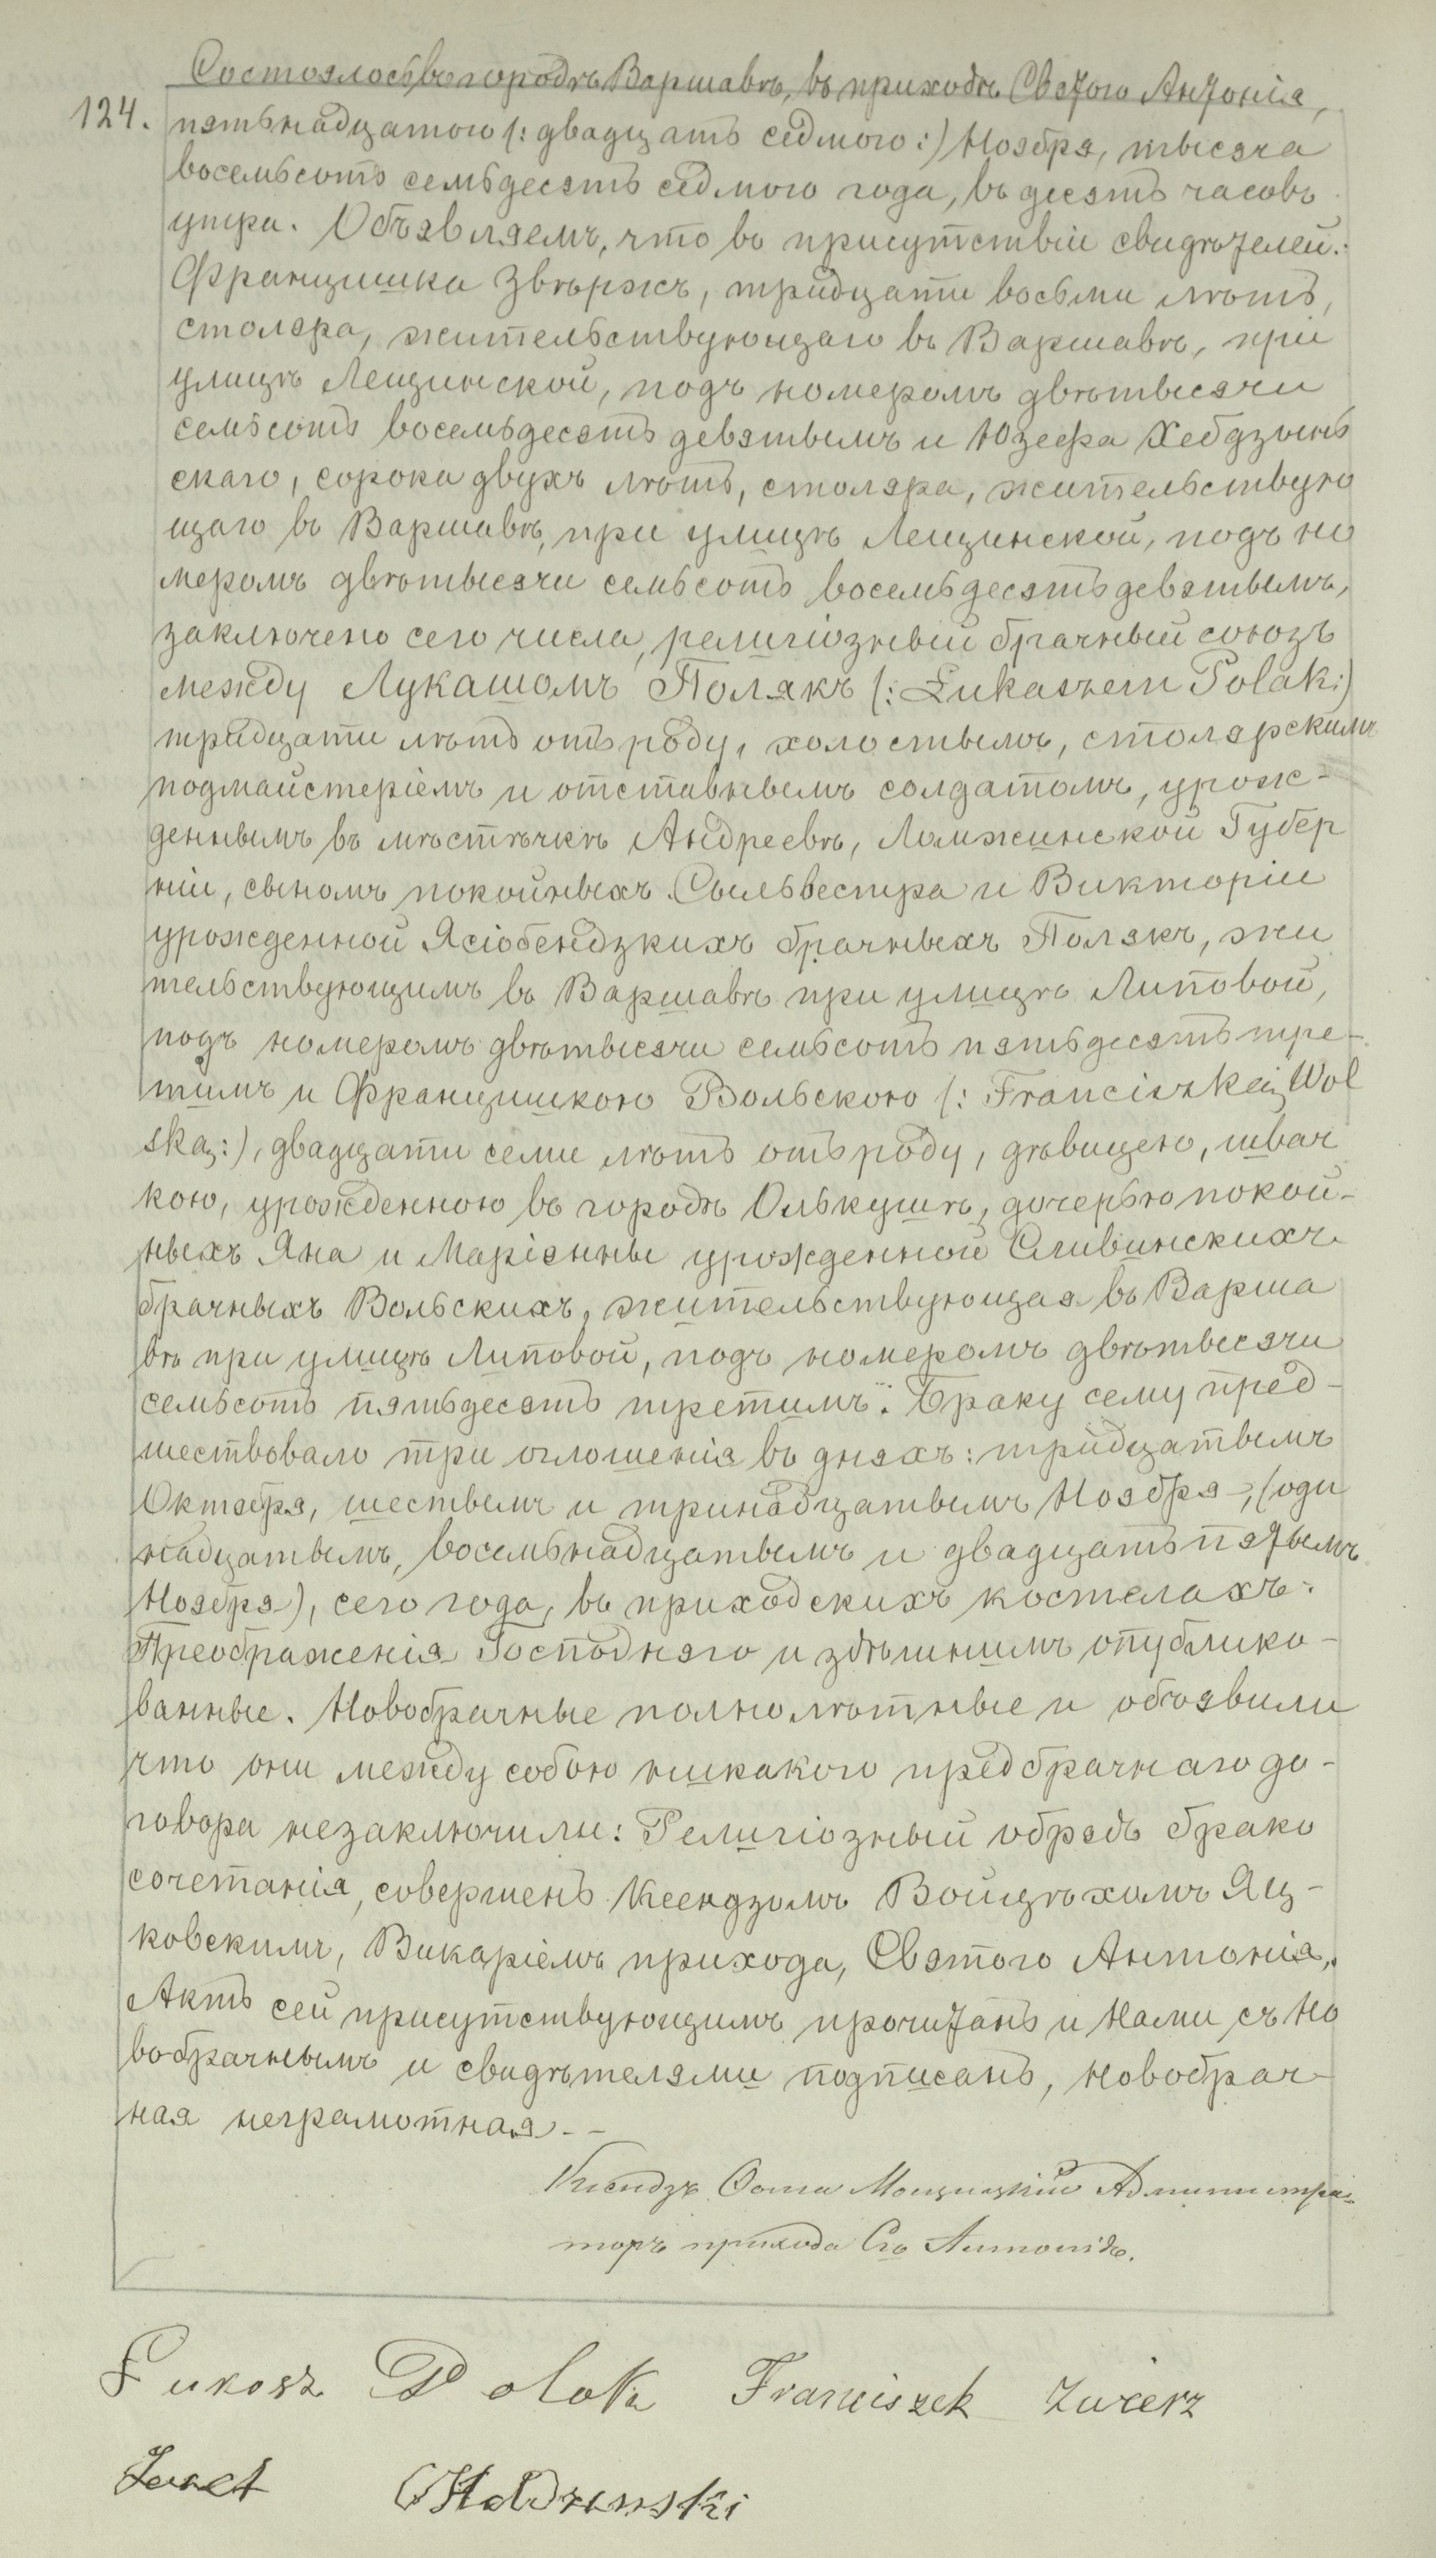 Состоялось въ городѣ Варшавѣ, въ приходѣ Святого Антонія,
124. пятьнадцатого (: двадцать седмого :) Ноября, тысяча
восемьсотъ семьдесятъ седмого года, въ десять часовъ
утра. Объявляемъ, что въ присутствіи свидѣтелей:
Францишка Звѣржъ, тридцати восьми лѣтъ,
столяра, жительствующаго въ Варшавѣ, при
улицѣ Лещинской, подъ номеромъ двѣтысячи
семьсотъ восемьдесятъ девятымъ и Юзефа Хебдзынь
скаго, сорока двухъ лѣтъ, столяра, жительствую
щаго въ Варшавѣ, при улицѣ Лещинской, подъ но
меромъ двѣтысячи семьсотъ восемьдесятъ девятымъ,
заключено сего числа, религіозный брачный союзъ
между Лукашомъ Полякъ (: Łukaszem Polak :)
тридцати лѣтъ отъ роду, холостымъ, столярскимъ
подмайстеріемъ и отставнымъ солдатомъ, урож-
деннымъ въ мѣстѣчкѣ Андреевѣ, Ломжинской Губер
ніи, сыномъ покойныхъ Сыльвестра и Викторіи
урожденной Ясіобендзкихъ брачныхъ Полякъ, жи
тельствующимъ въ Варшавѣ при улицѣ Липовой,
подъ номеромъ двѣтысячи семьсотъ пятьдесятъ тре-
тимъ и Францишкою Вольскою (: Franciszką Wol
ską :), двадцати семи лѣтъ отъ роду, дѣвицею, швач
кою, урожденною въ городѣ Олькушѣ, дочерью покой-
ныхъ Яна и Маріянны урожденной Сливинскихъ
брачныхъ Вольскихъ, жительствующая въ Варша
вѣ при улицѣ Липовой, подъ номеромъ двѣтысячи
семьсотъ пятьдесятъ третимъ. Браку сему пред-
шествовало три оглошенія въ дняхъ: тридцатымъ
Октября, шестымъ и тринадцатымъ Ноября, (оди
надцатымъ, восемьнадцатымъ и двадцать пятымъ
Ноября), сего года, въ приходскихъ костелахъ:
Преображенія Господняго и здѣшнимъ опублико-
ванные. Новобрачные полнолѣтные и объявили
что они между собою никакого предбрачнаго до-
говора незаключили: Религіозный обрядъ брако
сочетанія, совершенъ Ксендзомъ Войцѣхомъ Яц-
ковскимъ, Викаріемъ прихода, Святого Антонія,
Актъ сей присутствующимъ прочитанъ и Нами съ Но
вобрачнымъ и свидѣтелями подписанъ, новобрач-
ная неграмотная. -
Ксендзъ Ѳома Мощицкій Администра-
торъ прихода Св Антонія.
Łukasz Polak Franciszek Zwierz
Józef